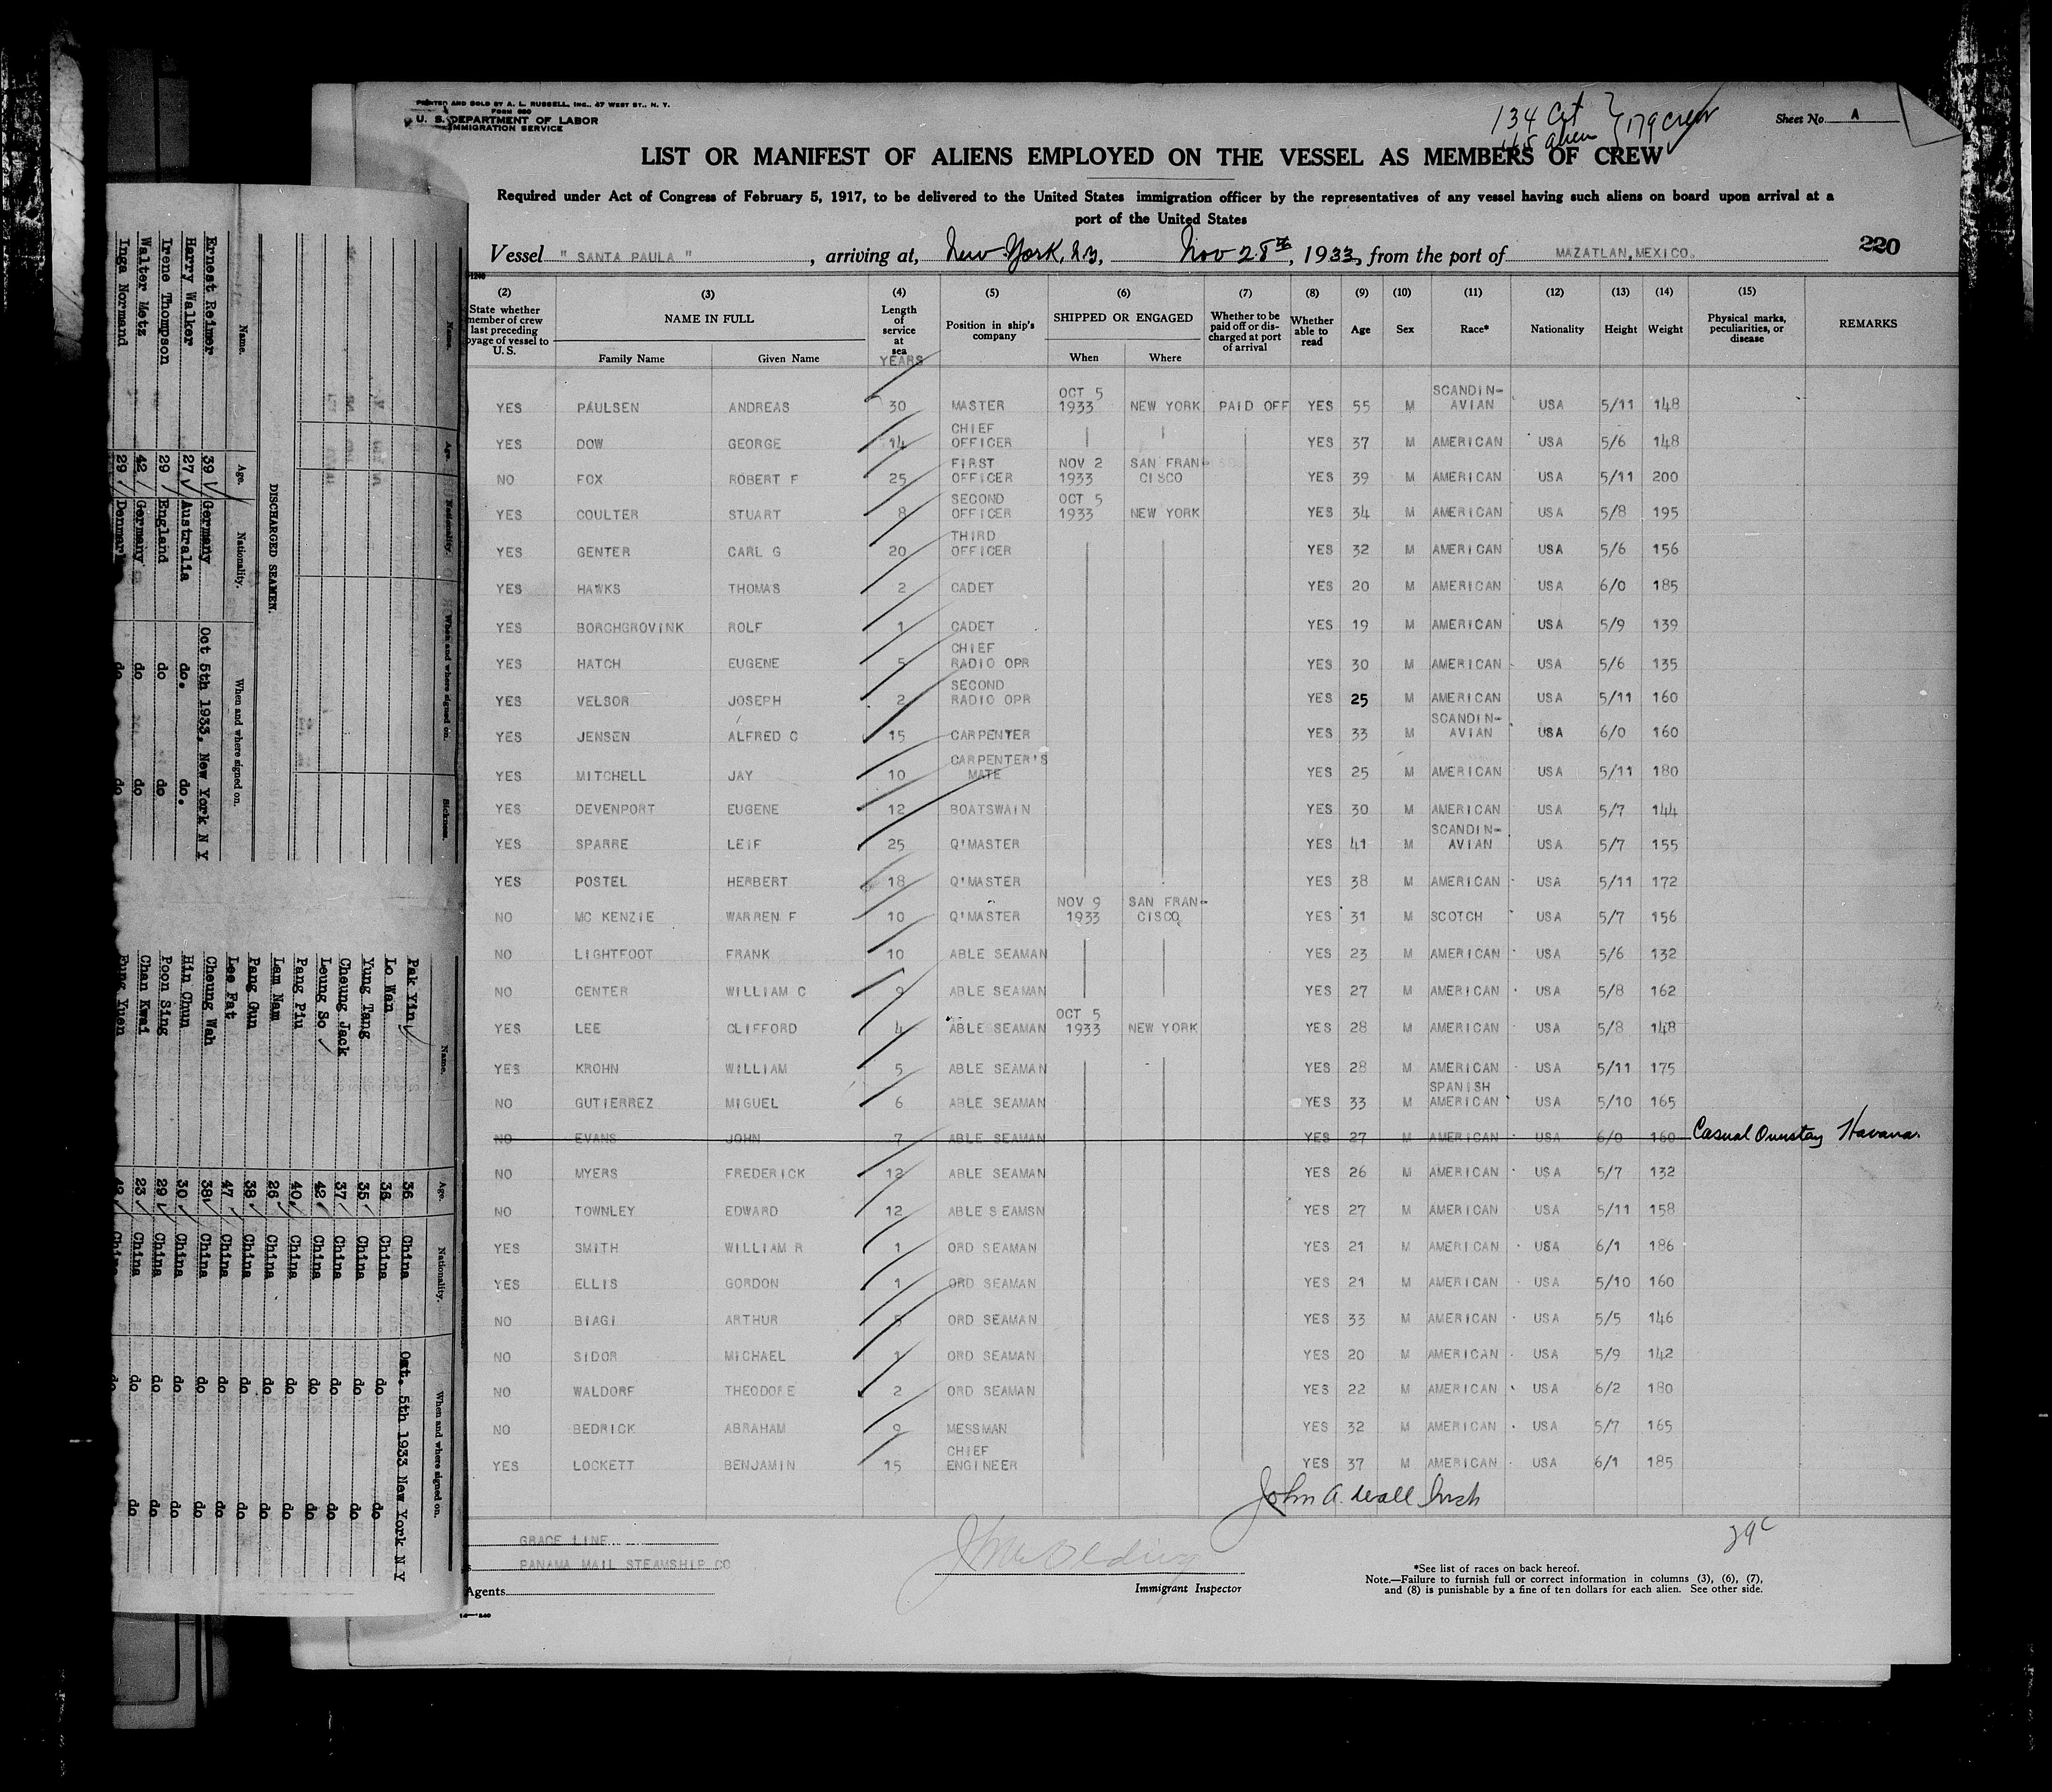 PRINTED AND SOLD BY A. L. RUSSELL, INC., 47 WEST ST., N. Y.
U. S. DEPARTMENT OF LABOR
IMMIGRATION SERVICE
134 Cit
45 alien } 179 crew
Sheet No. A
LIST OR MANIFEST OF ALIENS EMPLOYED ON THE VESSEL AS MEMBERS OF CREW
Required under Act of Congress of February 5, 1917, to be delivered to the United States immigration officer by the representatives of any vessel having such aliens on board upon arrival at a
port of the United States
Vessel " SANTA PAULA " , arriving at, New York, N.Y., Nov 28th, 1933, from the port of MAZATLAN, MEXICO.
220
(2) State whether member of crew last preceding voyage of vessel to U.S.
(3) NAME IN FULL Family Name Given Name
(4) Length of service at sea YEARS
(5) Position in ship's company
(6) SHIPPED OR ENGAGED When Where
(7) Whether to be paid off or discharged at port of arrival
(8) Whether able to read
(9) Age
(10) Sex
(11) Race*
(12) Nationality
(13) Height
(14) Weight
(15) Physical marks, peculiarities, or disease
REMARKS
YES PAULSEN ANDREAS 30 MASTER OCT 5 1933 NEW YORK PAID OFF YES 55 M SCANDIN-AVIAN USA 5/11 148
YES DOW GEORGE 14 CHIEF OFFICER YES 37 M AMERICAN USA 5/6 148
NO FOX ROBERT F 25 FIRST OFFICER NOV 2 1933 SAN FRANCISCO YES 39 M AMERICAN USA 5/11 200
YES COULTER STUART 8 SECOND OFFICER OCT 5 1933 NEW YORK YES 34 M AMERICAN USA 5/8 195
YES GENTER CARL G 20 THIRD OFFICER YES 32 M AMERICAN USA 5/6 156
YES HAWKS THOMAS 2 CADET YES 20 M AMERICAN USA 6/0 185
YES BORCHGROVINK ROLF 1 CADET YES 19 M AMERICAN USA 5/9 139
YES HATCH EUGENE 5 CHIEF RADIO OPR YES 30 M AMERICAN USA 5/6 135
YES VELSOR JOSEPH 2 SECOND RADIO OPR YES 25 M AMERICAN USA 5/11 160
YES JENSEN ALFRED C 15 CARPENTER YES 33 M SCANDIN-AVIAN USA 6/0 160
YES MITCHELL JAY 10 CARPENTER'S MATE YES 25 M AMERICAN USA 5/11 180
YES DEVENPORT EUGENE 12 BOATSWAIN YES 30 M AMERICAN USA 5/7 144
YES SPARRE LEIF 25 Q'MASTER YES 41 M SCANDIN-AVIAN USA 5/7 155
YES POSTEL HERBERT 18 Q'MASTER YES 38 M AMERICAN USA 5/11 172
NO MC KENZIE WARREN F 10 Q'MASTER NOV 9 1933 SAN FRAN-CISCO YES 31 M SCOTCH USA 5/7 156
NO LIGHTFOOT FRANK 10 ABLE SEAMAN YES 23 M AMERICAN USA 5/6 132
NO CENTER WILLIAM C 9 ABLE SEAMAN YES 27 M AMERICAN USA 5/8 162
YES LEE CLIFFORD 4 ABLE SEAMAN OCT 5 1933 NEW YORK YES 28 M AMERICAN USA 5/8 148
YES KROHN WILLIAM 5 ABLE SEAMAN YES 28 M AMERICAN USA 5/11 175
NO GUTIERREZ MIGUEL 6 ABLE SEAMAN YES 33 M SPANISH AMERICAN USA 5/10 165
NO EVANS JOHN 7 ABLE SEAMAN YES 27 M AMERICAN USA 6/0 160 Casual Havana.
NO MYERS FREDERICK 12 ABLE SEAMAN YES 26 M AMERICAN USA 5/7 132
NO TOWNLEY EDWARD 12 ABLE SEAMSN YES 27 M AMERICAN USA 5/11 158
YES SMITH WILLIAM R 1 ORD SEAMAN YES 21 M AMERICAN USA 6/1 186
YES ELLIS GORDON 1 ORD SEAMAN YES 21 M AMERICAN USA 5/10 160
NO BIAGI ARTHUR 5 ORD SEAMAN YES 33 M AMERICAN USA 5/5 146
NO SIDOR MICHAEL 1 ORD SEAMAN YES 20 M AMERICAN USA 5/9 142
NO WALDORF THEODOFE 2 ORD SEAMAN YES 22 M AMERICAN USA 6/2 180
NO BEDRICK ABRAHAM 9 MESSMAN YES 32 M AMERICAN USA 5/7 165
YES LOCKETT BENJAMIN 15 CHIEF ENGINEER YES 37 M AMERICAN USA 6/1 185
John A. Wall Insp
GRACE LINE
PANAMA MAIL STEAMSHIP CO
Agents
Immigrant Inspector
29 c
*See list of races on back hereof.
Note.—Failure to furnish full or correct information in columns (3), (6), (7),
and (8) is punishable by a fine of ten dollars for each alien. See other side.
Name. Age. Nationality. When and where signed on. Sickness.
DISCHARGED SEAMEN.
Name. Age. Nationality. When and where signed on.
Ernest Reimer 39 Germany Oct 5th 1933, New York N Y
Harry Walker 27 Australia do. do.
Irene Thompson 29 England do do
Walter Metz 42 Germany do do
Inga Normand 29 Denmark do do
Name. Age. Nationality. When and where signed on.
Pak Yin 36 China Oct. 5th 1933 New York N Y
Lo Wan 36 China do do
Yung Tang 35 China do do
Cheung Jack 37 China do do
Leung So 42 China do do
Pang Piu 40 China do do
Lam Nam 26 China do do
Pang Gun 38 China do do
Lee Fat 47 China do do
Cheung Wah 38 China do do
Hin Chun 30 China do do
Poon Sing 29 China do do
Chan Kwai 23 China do do
Fung Yuen 42 China do